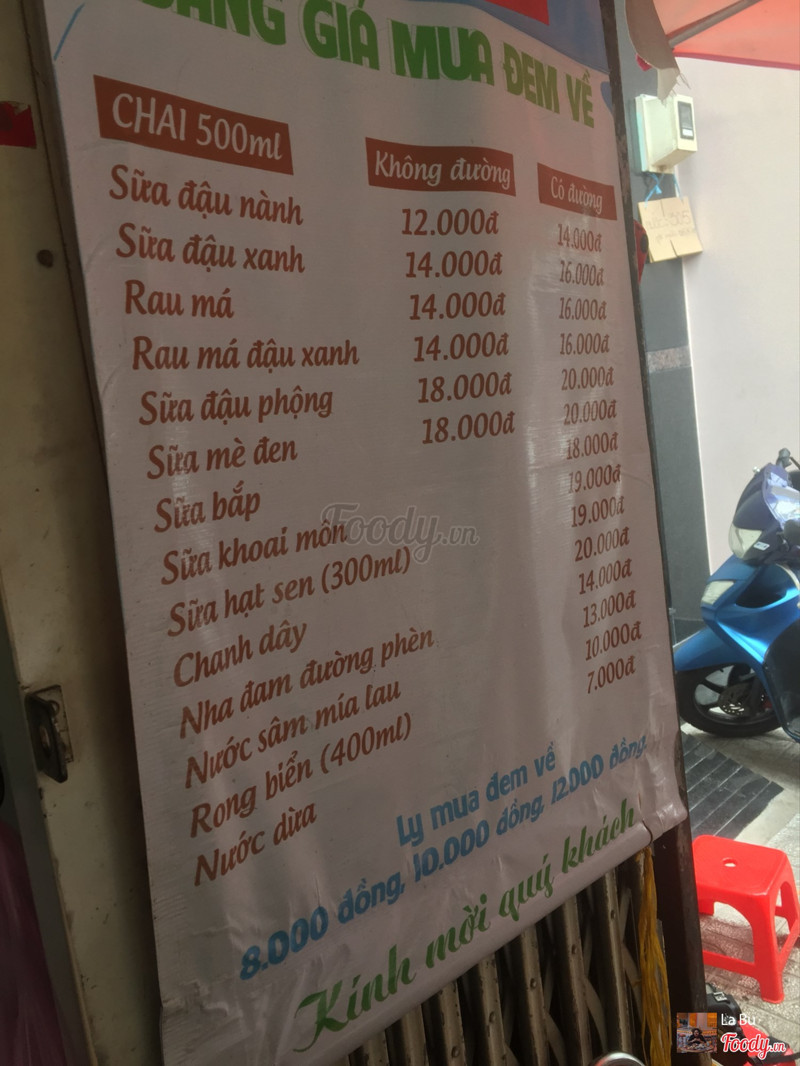 BẢNG GIÁ MUA ĐEM VỀ
CHAI 500ml Không đường Có đường
Sữa đậu nành 12.000đ 14.000đ
Sữa đậu xanh 14.000đ 16.000đ
Rau má 14.000đ 16.000đ
Rau má đậu xanh 14.000đ 16.000đ
Sữa đậu phộng 18.000đ 20.000đ
Sữa mè đen 18.000đ 20.000đ
Sữa bắp 18.000đ
Sữa khoai môn 19.000đ
Sữa hạt sen (300ml) 19.000đ
Chanh dây 20.000đ
Nha đam đường phèn 14.000đ
Nước sâm mía lau 13.000đ
Rong biển (400ml) 10.000đ
Nước dừa 7.000đ
Ly mua đem về
8.000 đồng, 10.000 đồng, 12.000 đồng.
Kính mời quý khách
Foody.vn
La Bu
Foody.vn